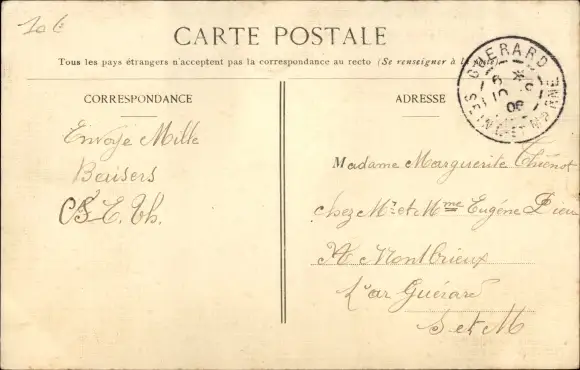 10 €
CARTE POSTALE
Tous les pays étrangers n'acceptent pas la correspondance au recto (Se renseigner à
GUERARD
SEINE-ET-MARNE
CORRESPONDANCE
ADRESSE
Envoje Mille
Beisers
E. Th.
Madame Marguerite Thiénot
chez Mr et Mme Eugéne
A Montbrieux
Par Guérard
S et M